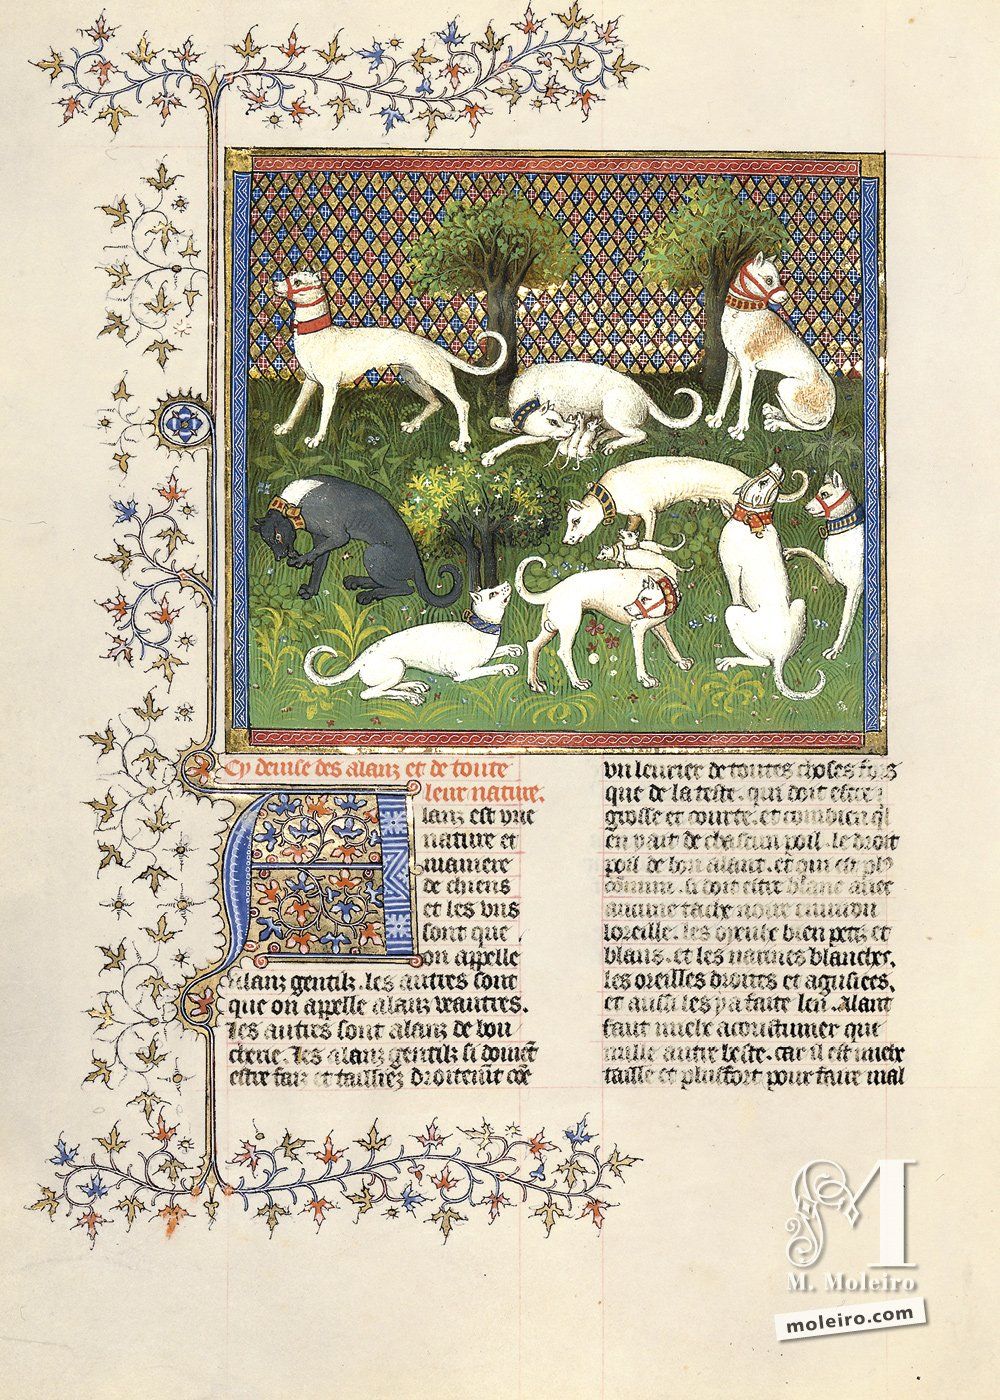 Cy deuise des alanz et de toute
leur nature.
Alanz est vne
nature et
maniere
de chiens
et les vns
sont que
on appelle
alanz gentilz. les autres sont
que on appelle alanz veautres.
Les autres sont alanz de bou
cherie. Les alanz gentilz si doiuet
estre faiz et tailliez droitemt coe
vn leurier de toutes choses fors
que de la teste. qui doit estre
grosse et courte. et combien ql
en y ait de chascun poil. le droit
poil de bon alant. et qui est pl9
comun. si doit estre blanc auec
aucune tache noire enuiron
loreille. les oyeulx bien petiz et
blans. et les narines blanches.
les oreilles droites et aguisees.
et aussi les y a faite len. Alant
faut mielx acoustumer que
nulle autre beste. car il est mielx
taille et plus fort pour faire mal
M
M. Moleiro
moleiro.com